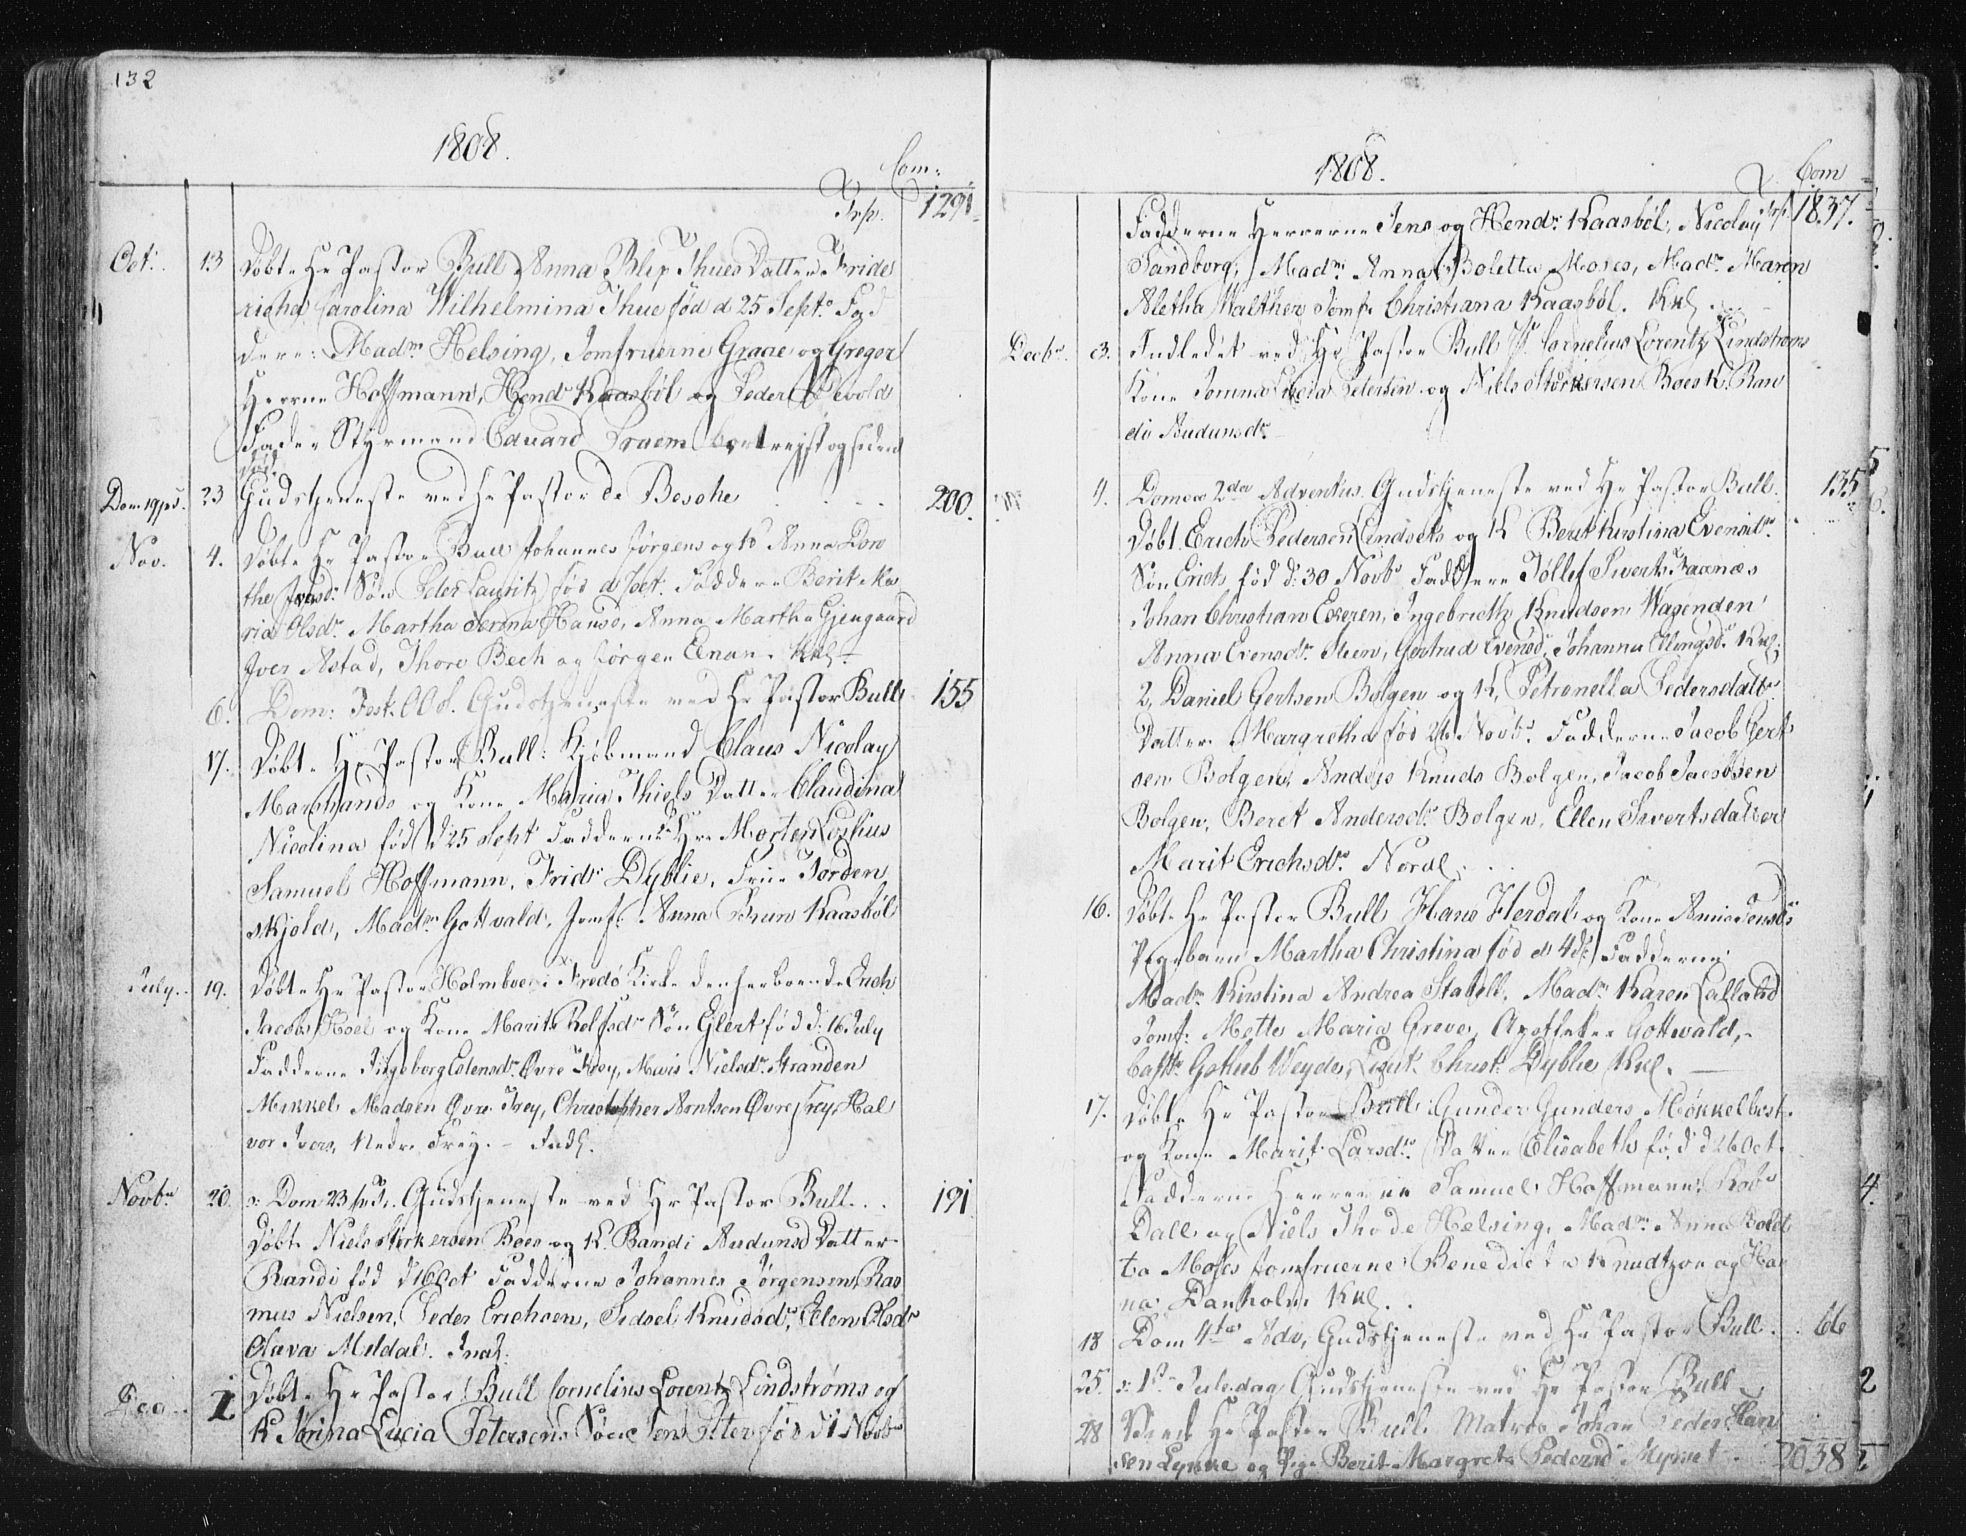 132
1808.
Com:
Trp. 1291
Oct: 13 Døbte Hr Pastor Bull Anna Blix Thues Datter Fride
richa Carolina Wilhelmina Thue fød d 25 Septr Fad
dere: Madm Helsing, Jomfruerne Graae og Greger
Herrne Hoffmann, Hendr Kaasbøl og Peder Devold
Fader Styrmand Eduard bortreyst og siden
død.
Dom 19 p 23 Gudstjeneste ved Hr Pastor de Besche 200.
Nov. 4. Døbte Hr Pastor Bull Johannes Jørgens og K Anna Doro
the Søn Peder Lauritz fød d Oct: Faddere Berit Ma
ria Olsdr Martha Serina Hause, Anna Martha Gjengaard
Iver Astad, Thore Bech og Jørgen Enan. Kkl.
6. Dom: Fest. OOS. Gudstjeneste ved Hr Pastor Bull 155
17. Døbte Hr Pastor Bull: Kjøbmand Claus Nicolay
Marchands og Kone Maria Thiels Datter Claudina
Nicolina fød d 25 Sept Fadderne Hrr Morten Coslius
Samuel Hoffmann, Fridr Dyblie, Frue Torden
skjold, Madm Gottwald, Jomf: Anna Brun Kaasbøl
July. 19. Døbte Hr Pastor Holmboe i Fredø Kirke den her boende Erich
Jacobs Hoel og Kone Marit Rolfsdr Søn Glert fød d: 16 July
Fadderne Ingeborg Colensdr Øvre Frey, Maris Nielsdr Stranden
Mikkel Madsen Øvre Frey, Christopher Arntsen Øvre Frey, Hal
vor Ivers, Nedre Frey. – Indl.
Novbr 20. Dom 23 p Tr. Gudstjeneste ved Hr Pastor Bull. 191
Døbte Niels Størkersen Boes og K. Randi Audunsd Datter
Randi fød d 16 Oct Fadderne Johannes Jørgensen, Ras
mus Nielsen, Peder Erichsen, Sidsel Knudsdr, Elen Olsdr
Olava Meldal. Indl.
Dec. 1 Døbte Hr Pastor Bull Cornelius Lorentz Lindstrøms og
K Jørina Lucia Petersens Søn Jens Peter fød d 1 Novbr
1808.
Com
Trp. 1837.
Fadderne Herrerne Jens og Hendr: Kaasbøl, Nicolay
Sandborg, Madm Anna Boletta Moses, Madm Maren
Aletha Walther Jomfr Christiana Kaasbøl. Kkl.
Decbr. 3. Indledet ved Hr Pastor Bull Cornelius Lorentz Lindstrøms
Kone Lucia Petersen og Niels Størkersen Boes K. Ran
di Audunsdr
4. Domca 2da Adventus Gudstjeneste ved Hr Pastor Bull. 135
Døbt Erich Pedersen Lindsets og K Berit Kirstina Evensdr
Søn Erich fød d: 30 Novbr Faddere Tøllef Siverts Ranæs
Johan Christian Exeren, Ingebricth Knudsen Wagenden
Anna Evensdr Steen, Gertrud Evensd, Johanna Ellingsdr Kkl.
2, Daniel Gertsen Bolgen og K, Petronella Pedersdatter
Datter Margretha fød 26 Novbr. Fadderne Jacob Gert
sen Bolgen, Anders Knuds Bolgen, Jacob Jacobsen
Bolgen, Beret Andersdr Bolgen, Ellen Sivertsdatter
Marit Erichsdr Nordl.
16. Døbte Hr Pastor Bull Hans Herdal og Kone Annie Jensdr
Pigebarn Martha Christina fød d 4 ds. Fadderne
Madm Kirstina Andrea Stabell, Madm Karen Lalland
Jomf: Mette Maria Greve, Apotheker Gottwald,
Capt: Gotlieb Weyde, Lieut. Christ: Dyblie Kkl.
17. Døbte Hr Pastor Bull: Gunder Gunders Møkkelbost
og Kone Marit Larsdr. Datter Elisabeth fød d 26 Oct.
Fadderne Herrerne Samuel Hoffmann, Robt
Dall og Niels Thode Helsing, Madm Anna Bolet
ta Moses Jomfruerne Benedicte Knudtzon og Han
na Danholm Kkl.
18 Dom 4te Adv, Gudstjeneste ved Hr Pastor Bull. 66
25. 1ste Juledag Gudstjeneste ved Hr Pastor Bull
28 Hr Pastor Bull Matros Johan Peder Han
sen Lynne og Pige Berit Margrete Pedersd Myhret
2038